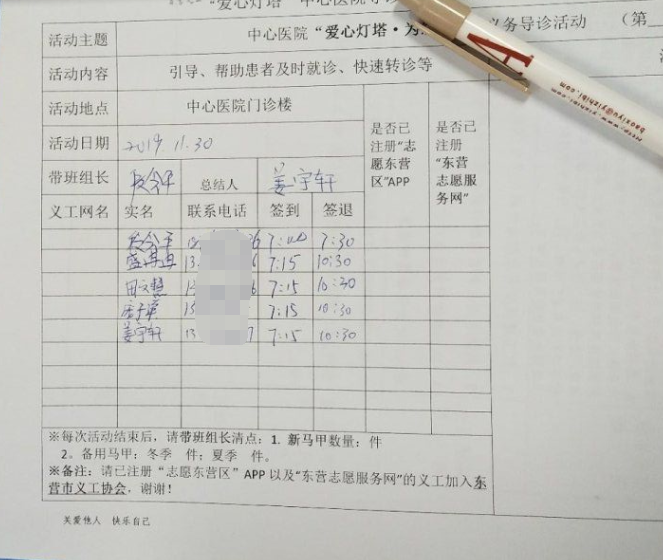 "爱心灯塔·中心医院导诊
活动主题 中心医院“爱心灯塔·为 义务导诊活动 （第
活动内容 引导、帮助患者及时就诊、快速转诊等
活动地点 中心医院门诊楼 是否已注册“志愿东营区”APP 是否已注册“东营志愿服务网”
活动日期 2019.11.30
带班组长 总结人 姜宇轩
义工网名 实名 联系电话 签到 签退
7:00 7:30
13 6 7:15 10:30
田文慧 7:15 10:30
7:15 10:30
姜宇轩 13 7 7:15 10:30
※每次活动结束后，请带班组长清点：1. 新马甲数量： 件
2。备用马甲：冬季 件；夏季 件。
※备注：请已注册“志愿东营区”APP 以及“东营志愿服务网”的义工加入东
营市义工协会，谢谢！
关爱他人 快乐自己